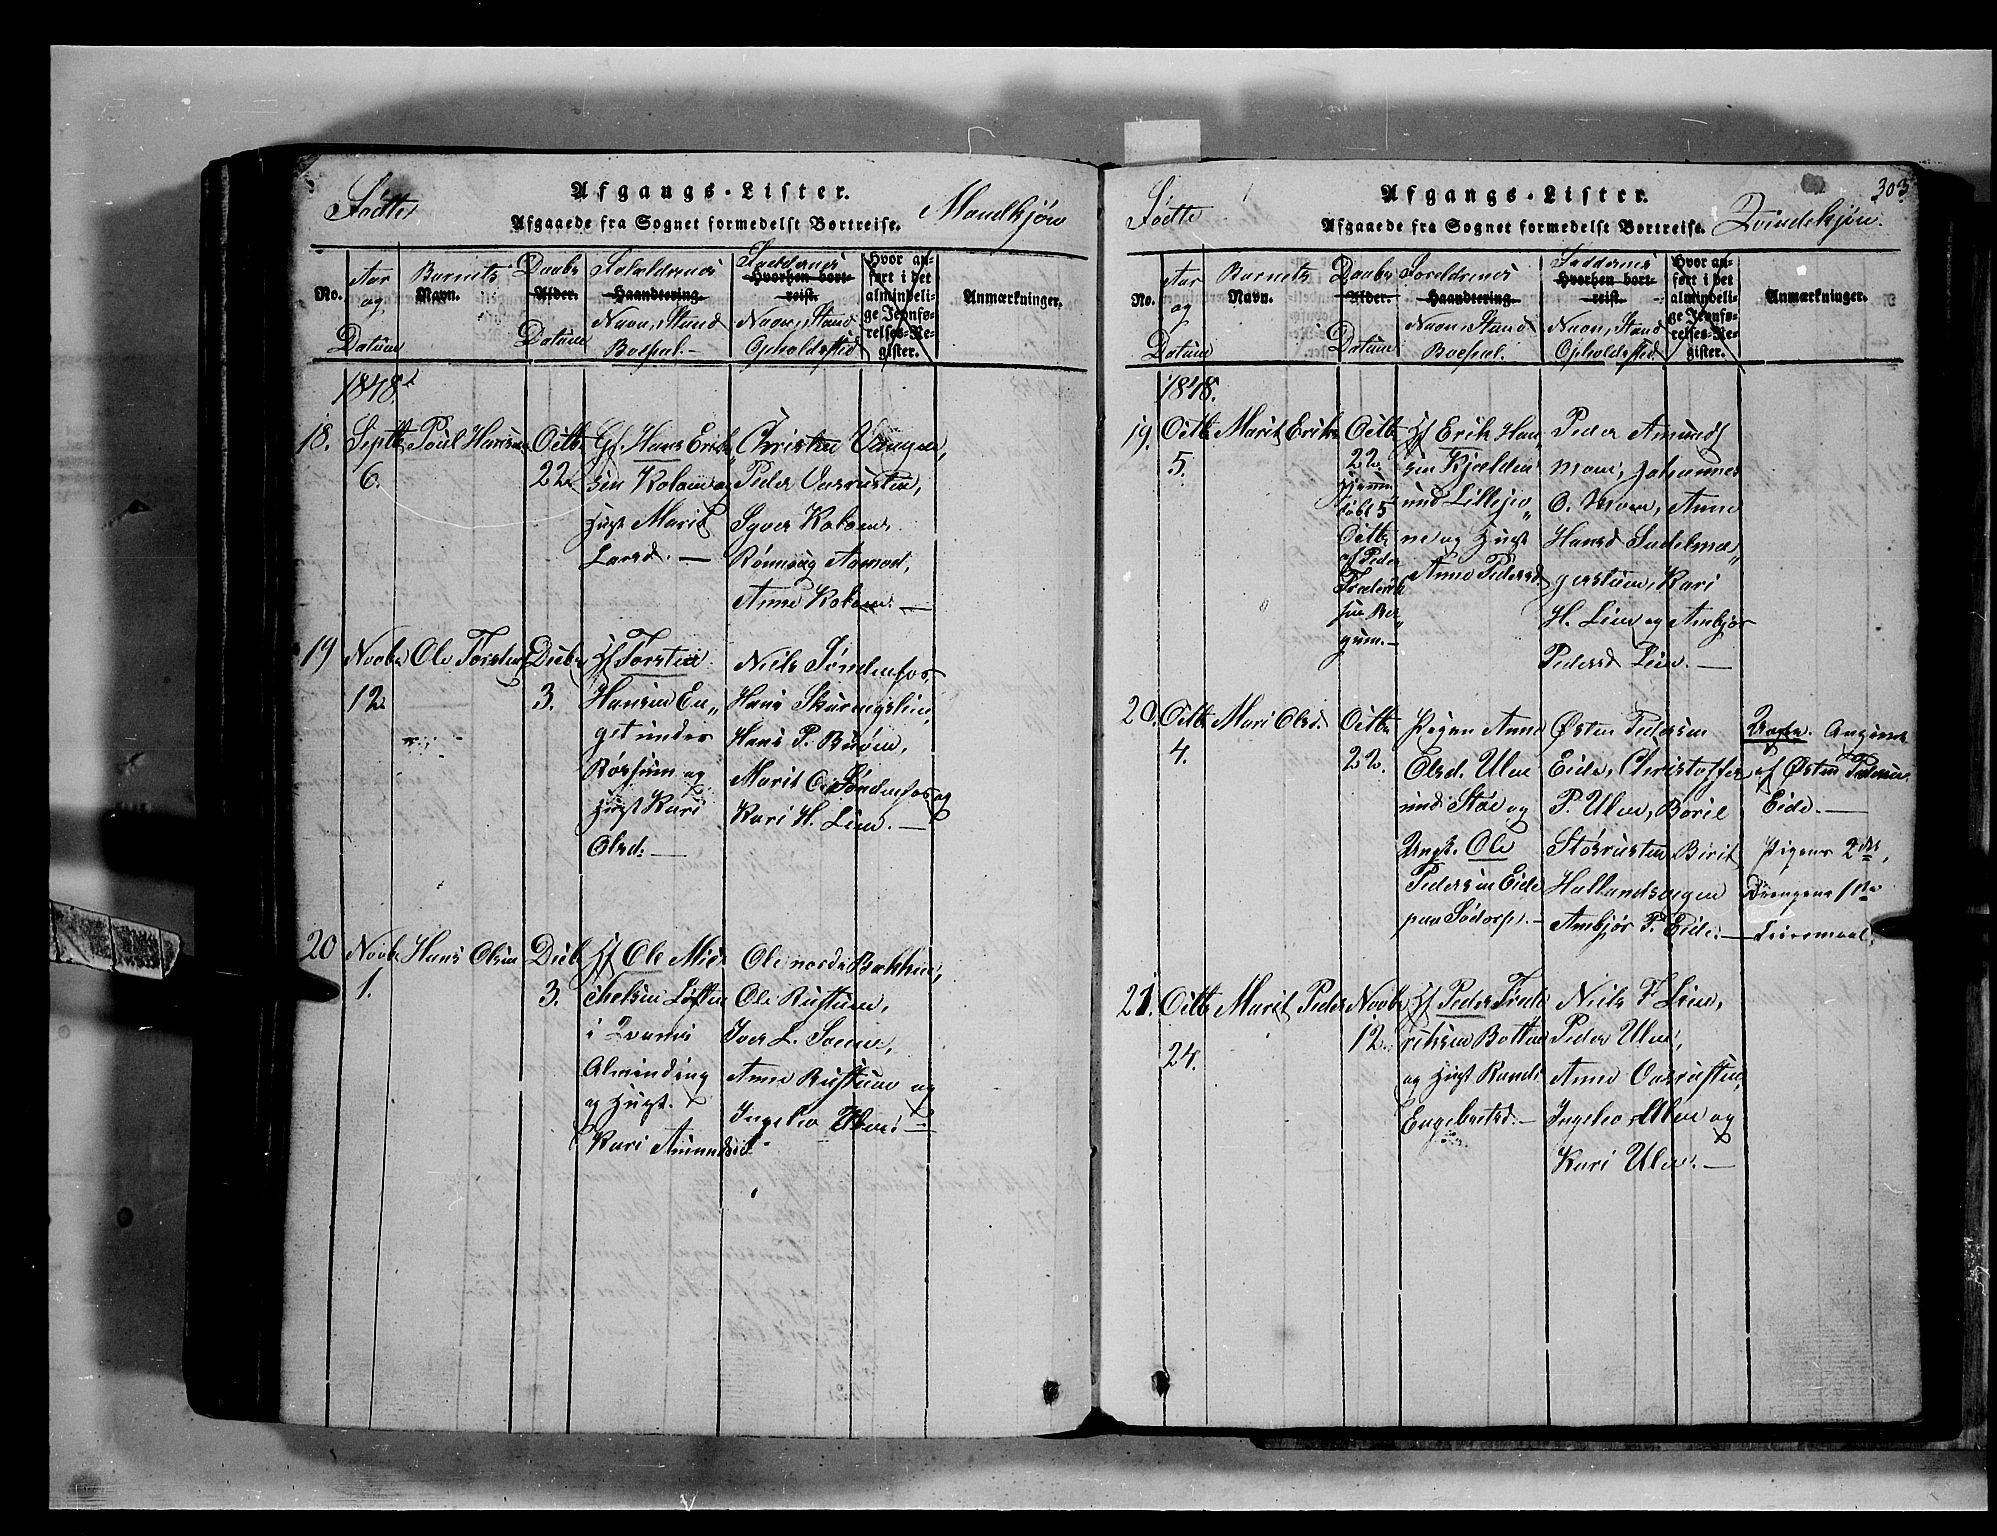 Fødte
Afgangs-Lister.
Afgaaede fra Sognet formedelst Bortreise.
Mandkjøn
No.
Aar
og
Datum
Barnets
Navn.
Daabs
Alder.
Datum
Forældrenes
Haandtering
Navn, Stand
Boepæl.
Faddernes
Hvorhen bort-
reist.
Navn, Stand
Opholdsted
Hvor an-
ført i det
almindeli-
ge Jevnfø-
relses-Re-
gister.
Anmærkninger.
1848.
18.
Septbr
6.
Poul Hansen
Octbr
22.
Gf. Hans Erik-
sen Kolom og
Hust Marit
Larsd. —
Christen Vangen,
Peder Vasrusten,
Syver Kolom,
Rønnoug Aomod,
Anne Kolom. —
19
Novbr
12.
Ole Torsten
Decbr
3.
Hf Torsten
Hansen En-
get under
Rossum og
Hust Kari
Olsd. —
Niels Søndenfos
Hans Skuringslien,
Hans P. Buøen,
Marit O. Søndenfos og
Kari H. Lien. —
20
Novbr
1.
Hans Olsen
Decbr
3.
Hf Ole Mic-
chelsen Løften
i Qvams
Almending
og Hust.
Kari Amundsd.
Ole nordre Bakken,
Ole Rustum,
Iver L. Solem,
Anne Rustum og
Ingebor Ulen. —
303
Fødte
Afgangs-Lister.
Afgaaede fra Sognet formedelst Bortreise.
Qvindekjøn.
No.
Aar
og
Datum
Barnets
Navn.
Daabs
Alder.
Datum
Forældrenes
Haandtering
Navn, Stand
Boepæl.
Faddernes
Hvorhen bort-
reist.
Navn, Stand
Opholdsted
Hvor an-
ført i det
almindeli-
ge Jevnfø-
relses-Re-
gister.
Anmærkninger.
1848.
19.
Octbr
5.
Marit Eriks
Octbr
22
hjemme-
døbt 5
Octbr
af Peder
Frederik-
sen Ber-
gum. —
Hf Erik Han-
sen Kjelden
und Lillejor-
ne og Hust
Anne Pedersd
Peder Amunds
moen, Johannes
O. Moen, Anne
Hansd Sadelma-
gerstuen, Kari
H. Lien og Anbjør
Pedersd Lien. —
20.
Octbr
4.
Mari Olsd.
Octbr
22.
Pigen Anne
Olsd. Ulen
und Støe og
Ungk. Ole
Pedersen Eide
paa Sødorp. —
Østen Pedersen
Eide, Christoffer
P. Ulen, Boril
Støsrusten Birit
Hallandsvigen
Anbjør P. Eide. —
Uægte. Angivet
af Østen Pedersen
Eide. —
Pigens 2det,
Drengens 1ste
Leiermaal.
21.
Octbr
24.
Marit Peders
Novbr
12.
Hf Peder Frede-
riksen Botten
og Hust Randi
Engebretsd. —
Niels F Lien,
Peder Ulen,
Anne Vasrusten,
Ingebor Ulen og
Kari Ulen. —